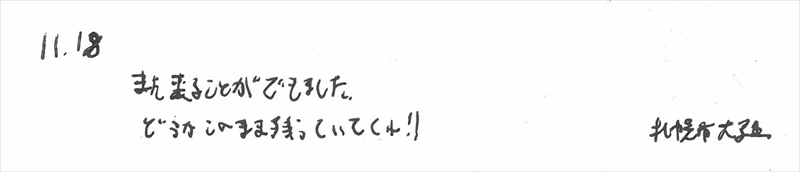 11.18
また来ることができました。
どうかこのまま残っていてくれ!!
札幌市 大